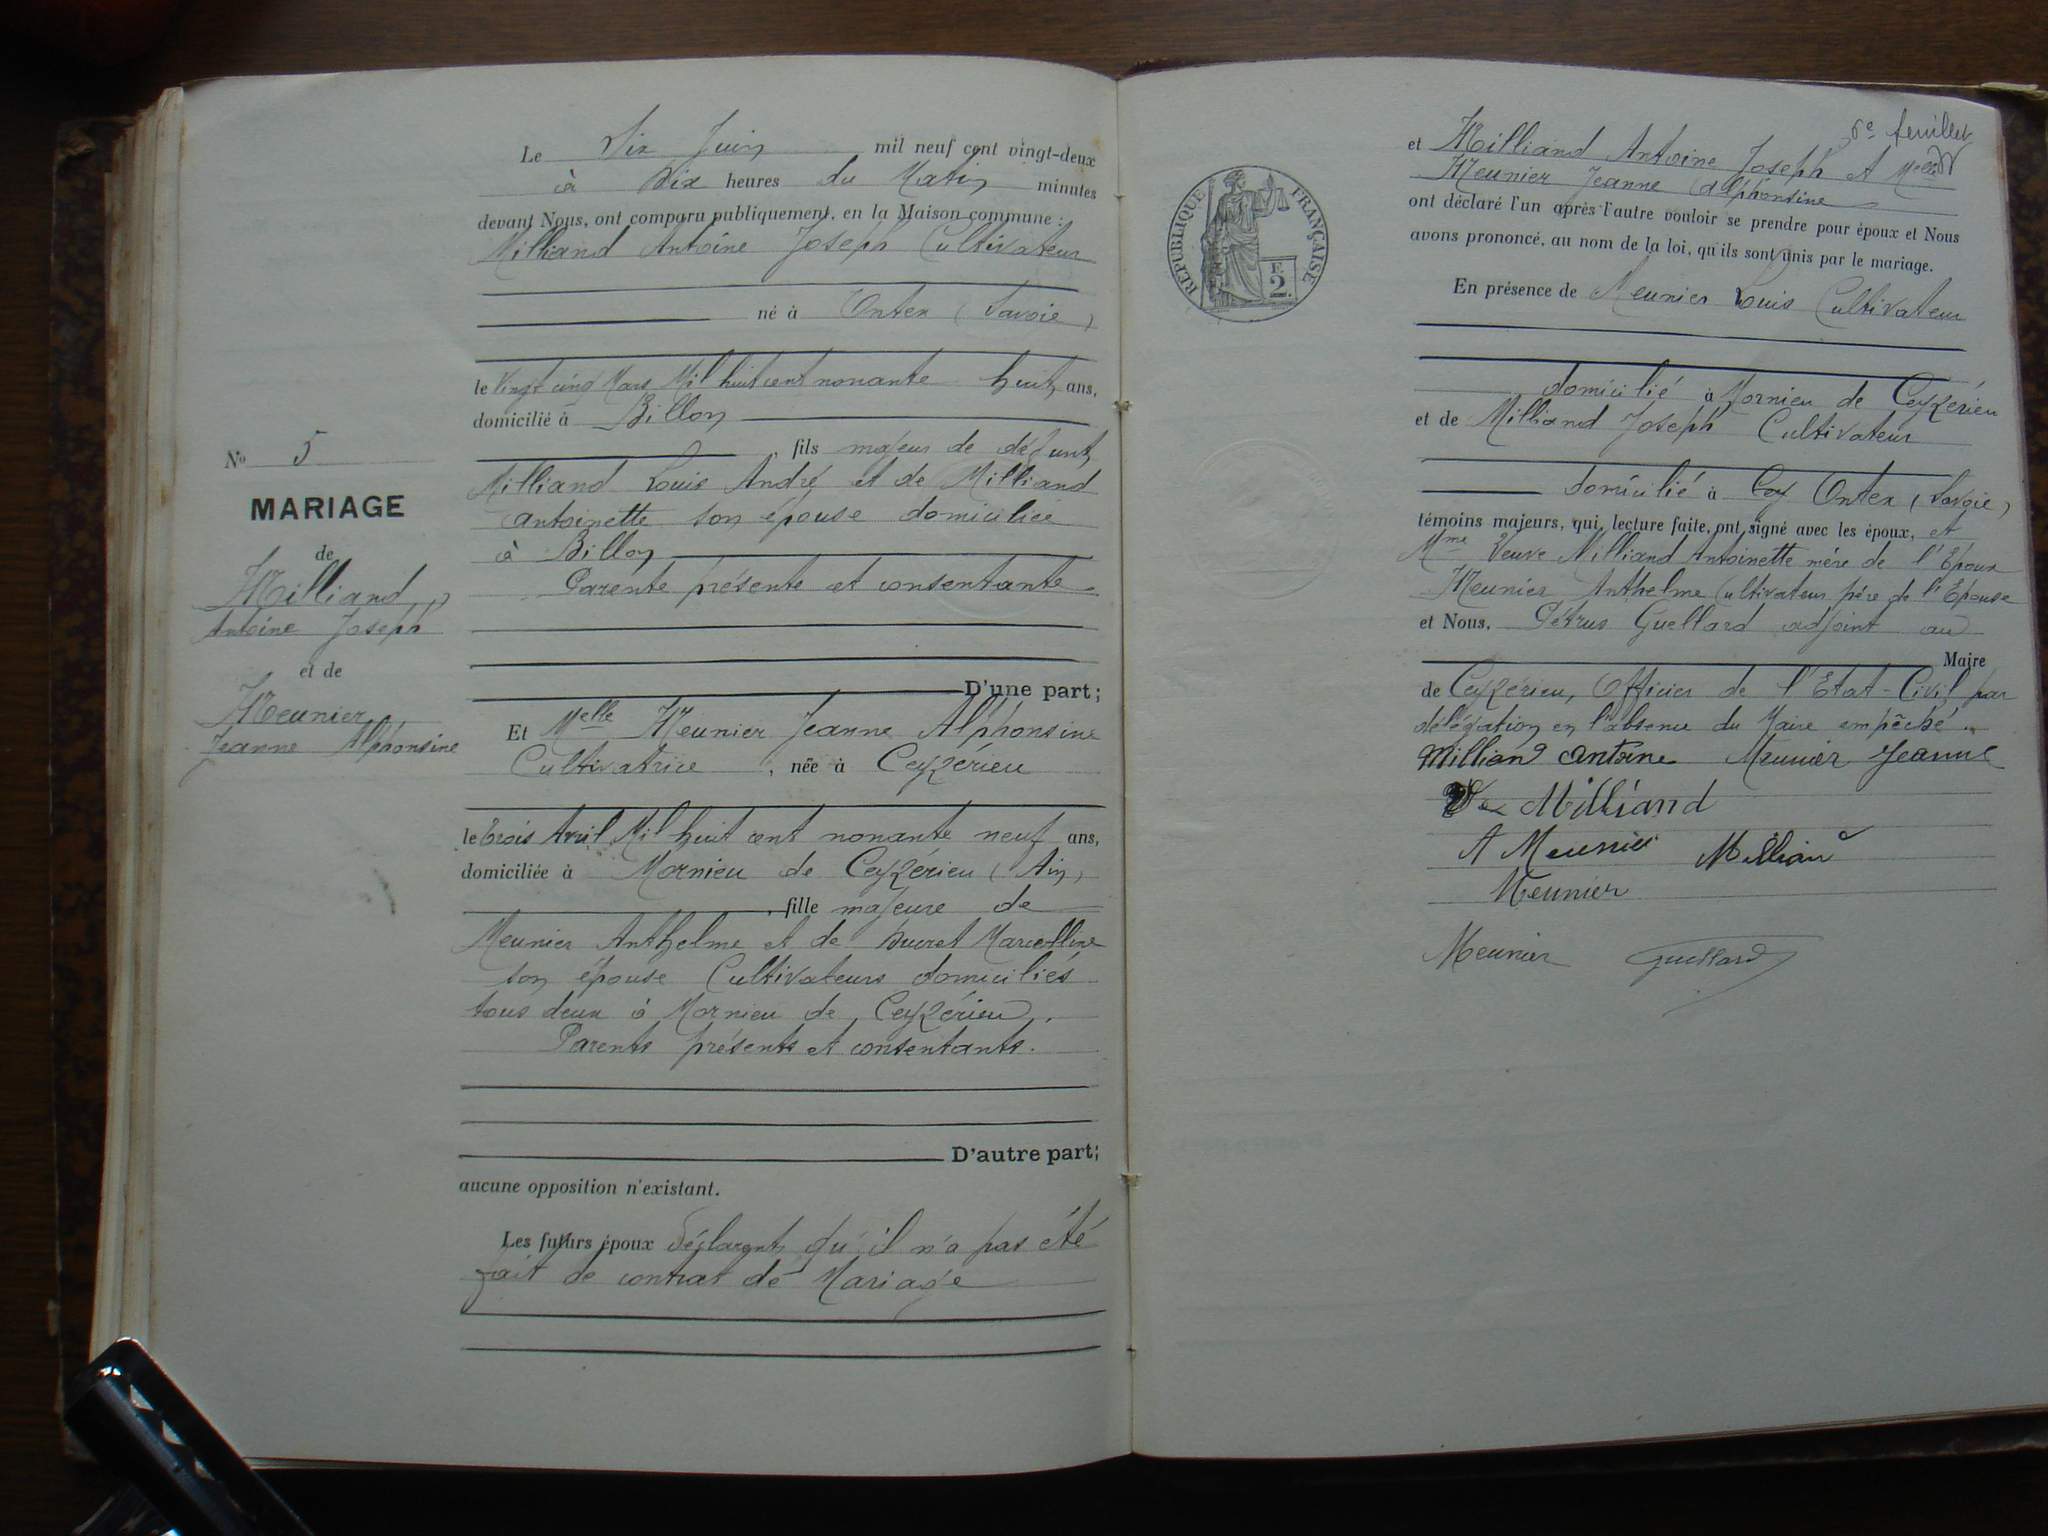 Le Dix Juin mil neuf cent vingt-deux
à Dix heures du Matin minutes
devant Nous, ont comparu publiquement, en la Maison commune :
Milliand Antoine Joseph Cultivateur
né à Ontex (Savoie)
le Vingt cinq Mars Mil huit cent nonante huit ans,
domicilié à Billon
, fils majeur de défunt
Milliand Louis André et de Milliand
Antoinette son épouse domiciliée
à Billon
Parente présente et consentante
D'une part;
Et Melle Meunier Jeanne Alphonsine
Cultivatrice, née à Ceyzérieu
le trois Avril Mil huit cent nonante neuf ans,
domiciliée à Mornieu de Ceyzérieu (Ain)
, fille majeure de
Meunier Anthelme et de Ducret Marcelline
son épouse Cultivateurs domiciliés
tous deux à Mornieu de Ceyzérieu.
Parents présents et consentants.
D'autre part;
aucune opposition n'existant.
Les futurs époux déclarent qu'il n'a pas été
fait de contrat de Mariage
No 5
MARIAGE
de
Milliand
Antoine Joseph
et de
Meunier
Jeanne Alphonsine
6e feuillet
RÉPUBLIQUE FRANÇAISE
F.
2.
et Milliand Antoine Joseph et Melle
Meunier Jeanne Alphonsine
ont déclaré l'un après l'autre vouloir se prendre pour époux et Nous
avons prononcé, au nom de la loi, qu'ils sont unis par le mariage.
En présence de Meunier Louis Cultivateur
domicilié à Mornieu de Ceyzérieu
et de Milliand Joseph Cultivateur
domicilié à Ontex (Savoie)
témoins majeurs, qui, lecture faite, ont signé avec les époux, et
Mme Veuve Milliand Antoinette mère de l'Epoux
Meunier Anthelme Cultivateur père de l'Epouse
et Nous, Pétrus Guellard adjoint au
Maire
de Ceyzérieu, Officier de l'Etat-Civil par
délégation en l'absence du Maire empêché.
Milliand Antoine Meunier Jeanne
Ve Milliand
A Meunier Milliand
Meunier
Meunier Guellard